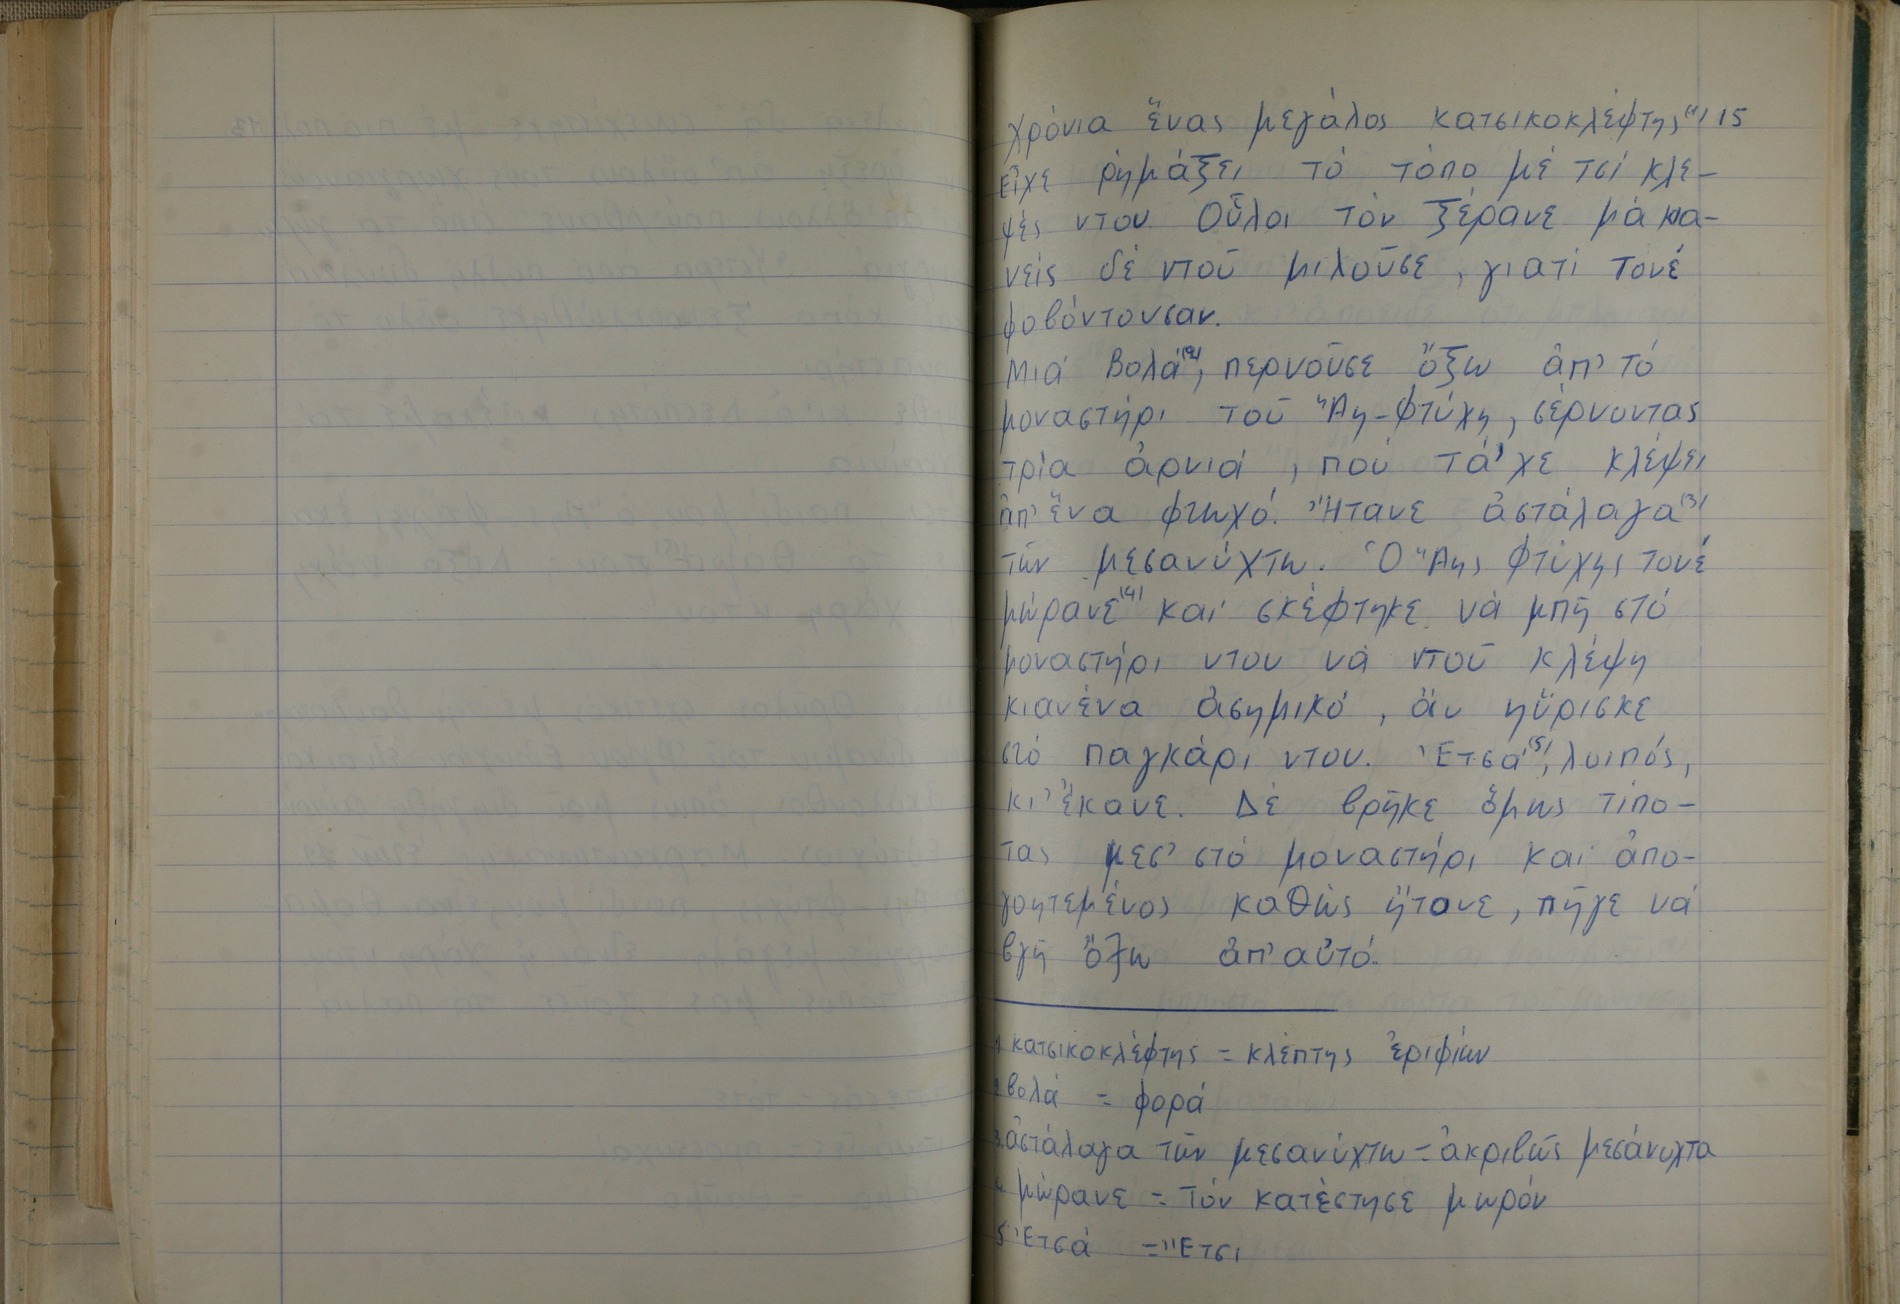 χρόνια ἕνας μεγάλος κατσικοκλέφτης(1) 15
Εἶχε ρημάξει τό τόπο μέ τσί κλε-
ψές ντου. Οὗλοι τόν ξέρανε μά κια-
νείς δέ ντοῦ μιλοῦσε, γιατί τονέ
φοβόντουσαν.
Μιά βολά(2), περνοῦσε ὄξω ἀπ' τό
μοναστήρι τοῦ Ἅη-Φτύχη, σέρνοντας
τρία ἀρνιά, πού τά' χε κλέψει
ἀπ' ἕνα φτωχό. Ἤτανε ἀστάλαγα(3)
τῶν μεσανύχτω. Ὁ Ἅης Φτύχης τονέ
μώρανε(4) καί σκέφτηκε νά μπῆ στό
μοναστήρι ντου νά ντοῦ κλέψη
κιανένα ἀσημικό, ἄν ηὕρισκε
στό παγκάρι ντου. Ἐτσά(5), λοιπός,
κι' ἔκανε. Δέ βρῆκε ὅμως τίπο-
τας μεσ' στό μοναστήρι καί ἀπο-
γοητεμένος καθώς ἤτανε, πῆγε νά
βγῆ ὄξω ἀπ' αὐτό.
1 κατσικοκλέφτης = κλέπτης ἐριφίων
2 βολά = φορά
3. ἀστάλαγα τῶν μεσανύχτω = ἀκριβῶς μεσάνυχτα
4 μώρανε = Τόν κατέστησε μωρόν
5 Ἐτσά = Ἔτσι